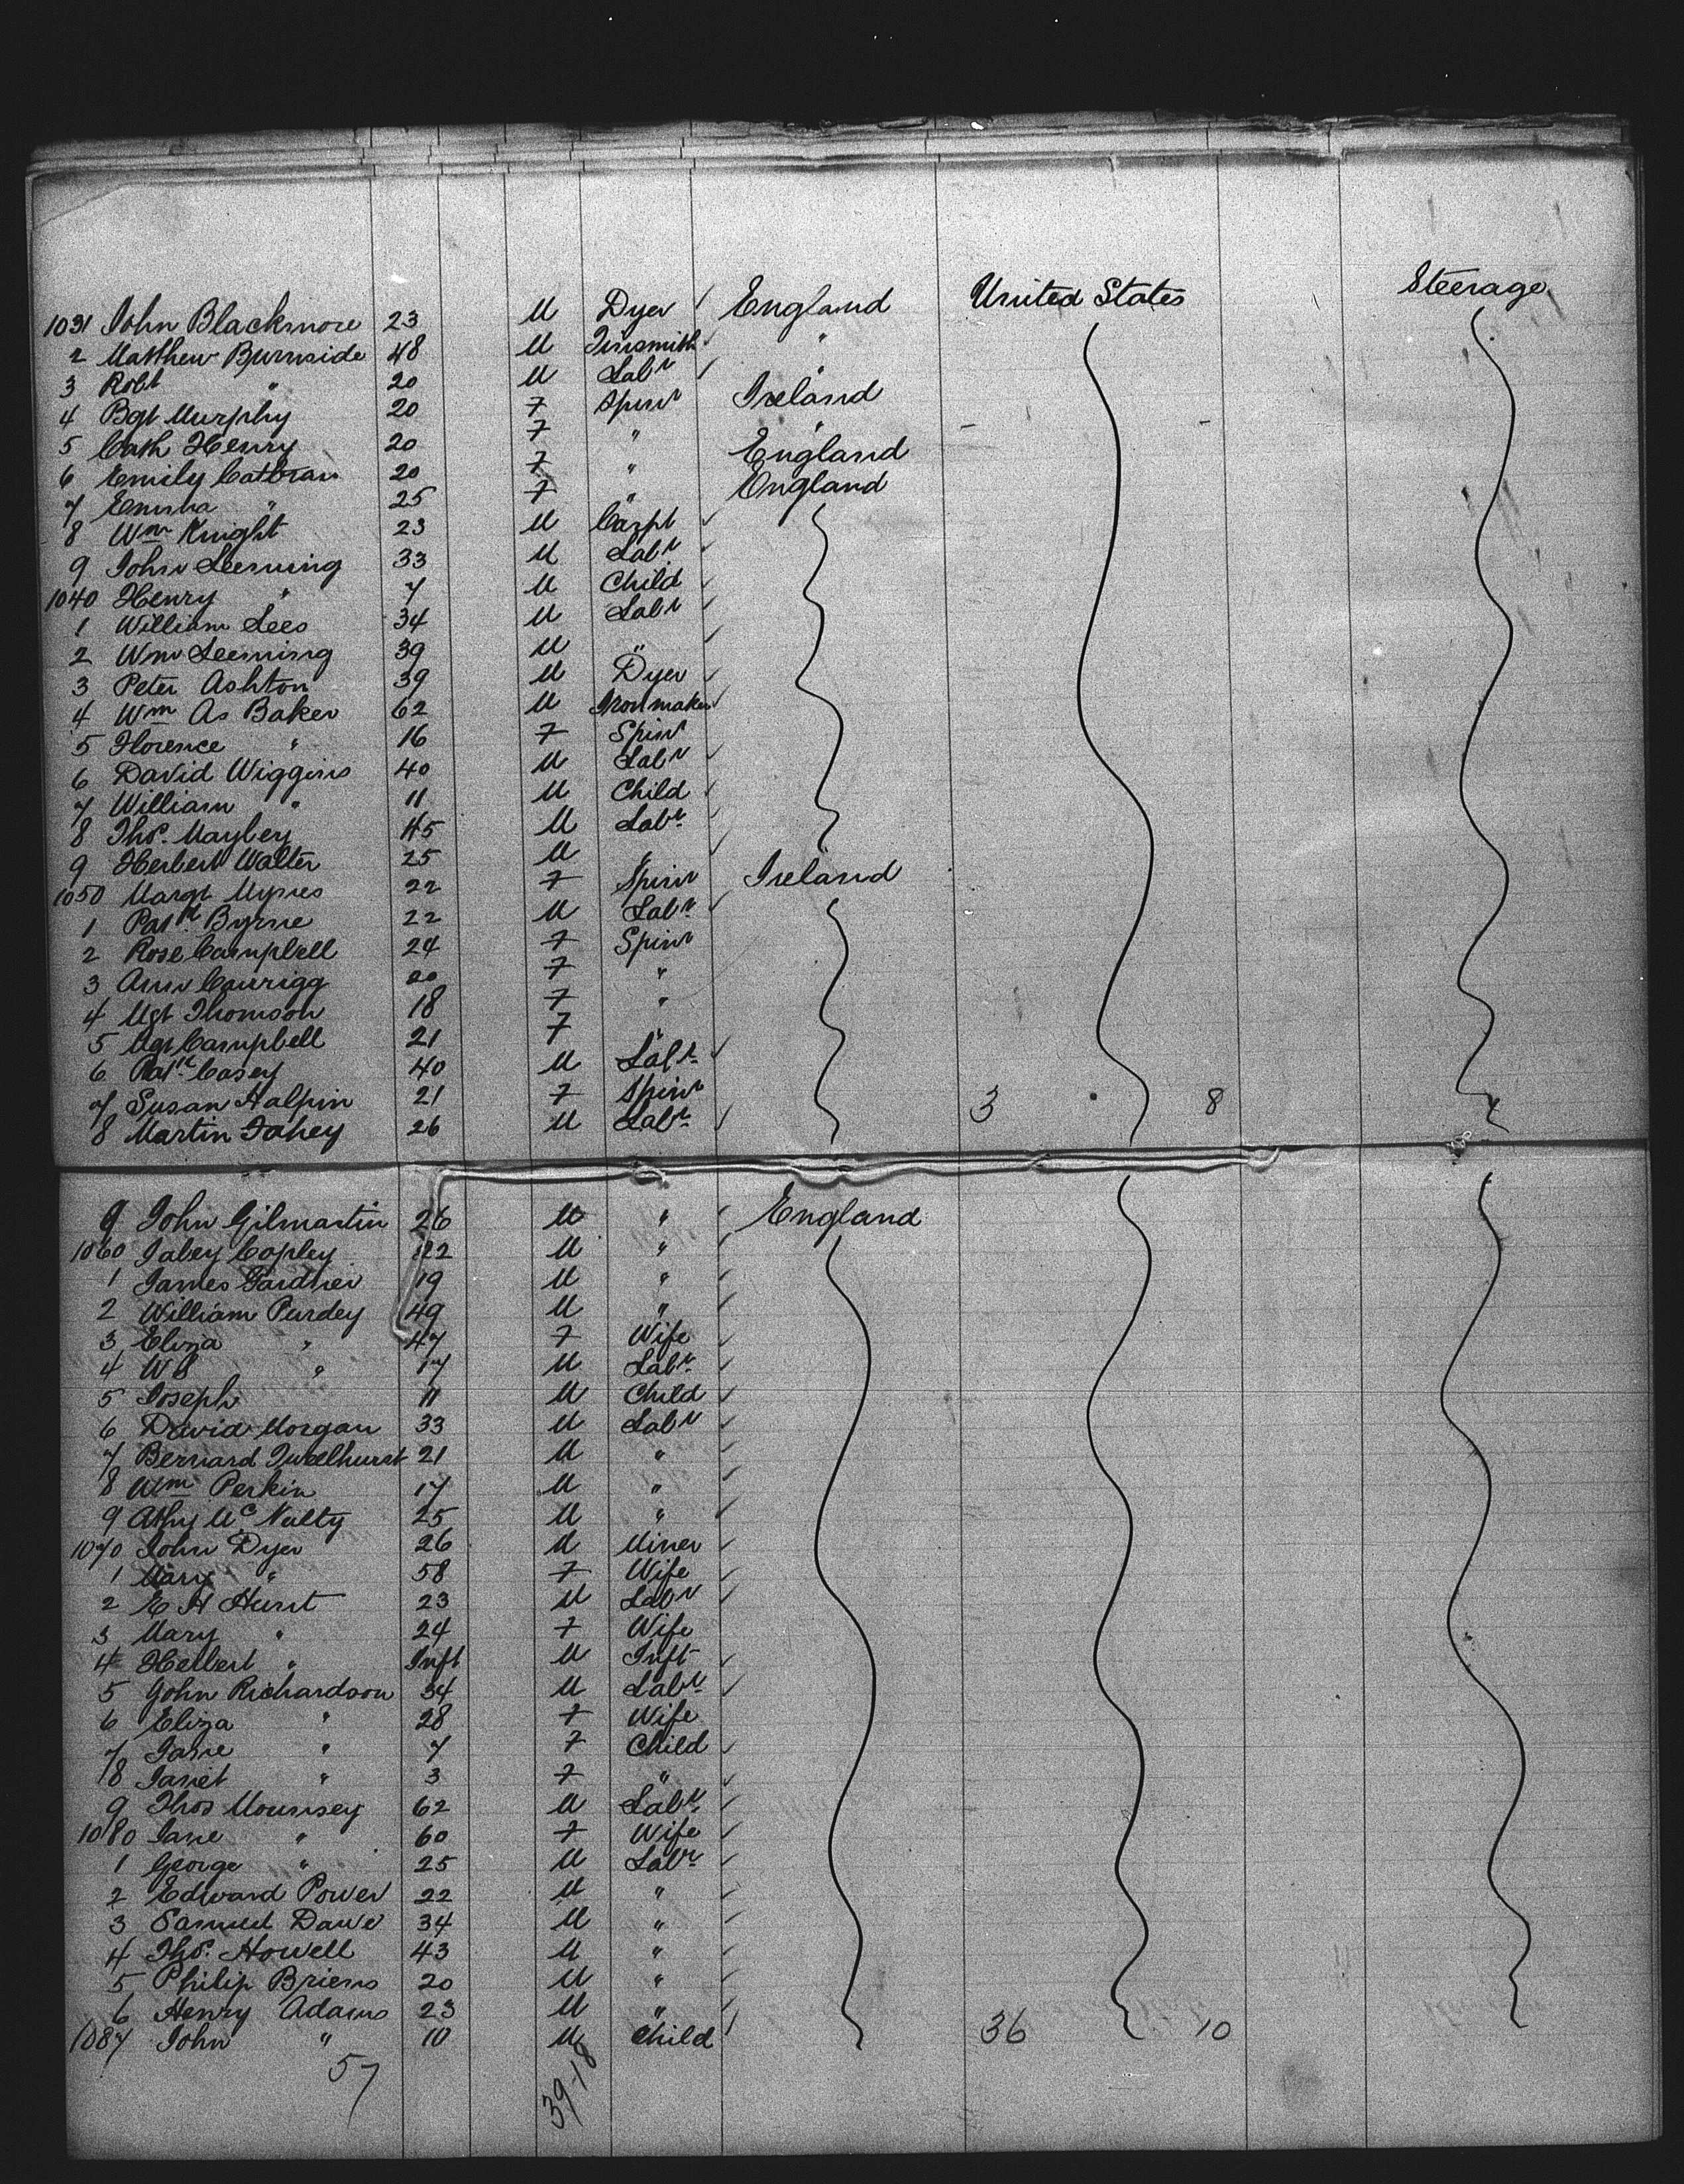 1031 John Blackmore 23 M Dyer England United States Steerage
2 Matthew Burnside 48 M Tinsmith "
3 Robt " 20 M Labr "
4 Bgt Murphy 20 F Spinr Ireland
5 Cath Henry 20 F " "
6 Emily 20 F " England
7 Emma " 25 F " England
8 Wm Knight 23 M Carpt
9 John Leeming 33 M Labr
1040 Henry " 7 M Child
1 William Lees 34 M Labr
2 Wm Leeming 39 M "
3 Peter Ashton 39 M Dyer
4 Wm As Baker 62 M Ironmaker
5 Florence " 16 F Spinr
6 David Wiggins 40 M Labr
7 William " 11 M Child
8 Thos. Maybey 45 M Labr
9 Herbert Walter 25 M "
1050 Margt 22 F Spinr Ireland
1 Patk Byrne 22 M Labr
2 Rose Campbell 24 F Spinr
3 Ann 20 F "
4 Mgt Thomson 18 F "
5 Mgt Campbell 21 F "
6 Patk Casey 40 M Labr
7 Susan Halpin 21 F Spinr 3 8
8 Martin Fahey 26 M Labr
9 John Gilmartin 26 M " England
1060 Jabey Copley 22 M "
1 James Gardner 19 M "
2 William Purdey 49 M "
3 Eliza " 47 F Wife
4 " 17 M Labr
5 Joseph 11 M Child
6 David Morgan 33 M Labr
7 Bernard 21 M "
8 Wm Perkin 17 M "
9 Athy McNulty 25 M "
1070 John Dyer 26 M Miner
1 Mary " 58 F Wife
2 E H Hurst 23 M Labr
3 Mary " 24 F Wife
4 Herbert " Inft M Inft
5 John Richardson 34 M Labr
6 Eliza " 28 F Wife
7 Jane " 7 F Child
8 Janet " 3 F "
9 Thos Mounsey 62 M Labr
1080 Jane " 60 F Wife
1 George " 25 M Labr
2 Edward Power 22 M "
3 Samuel Dawe 34 M "
4 Thos. Howell 43 M "
5 Philip Briens 20 M "
6 Henry Adams 23 M "
1087 John " 10 M Child 36 10
57 39-18